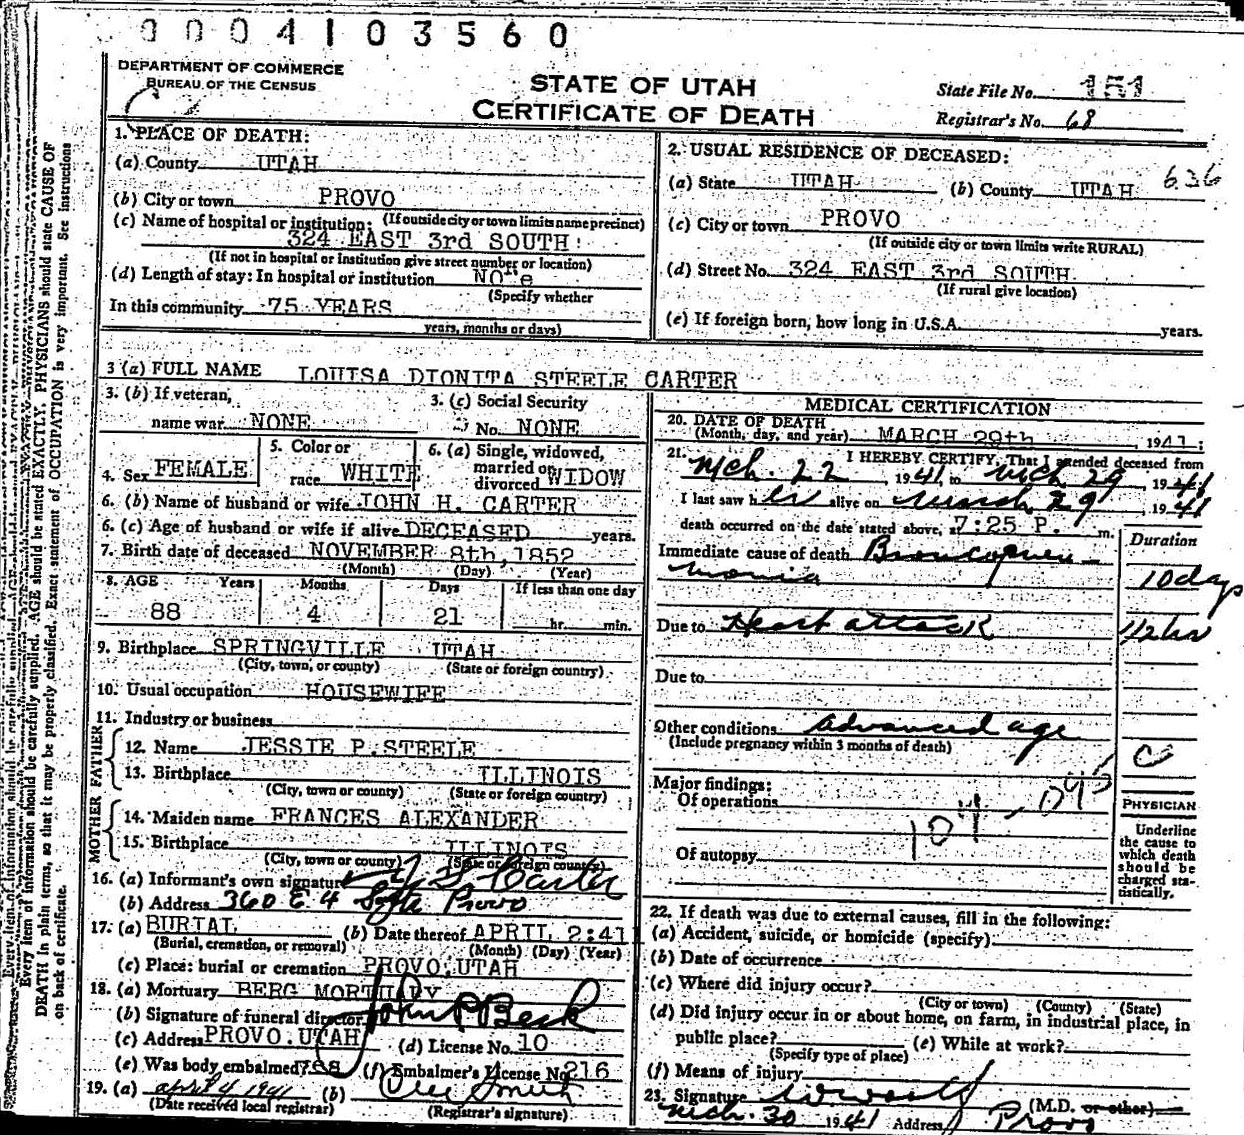 0004103560
DEPARTMENT OF COMMERCE
BUREAU OF THE CENSUS
STATE OF UTAH
CERTIFICATE OF DEATH
State File No. 151
Registrar's No. 68
1. PLACE OF DEATH:
(a) County UTAH
(b) City or town PROVO
(If outside city or town limits name precinct)
(c) Name of hospital or institution:
324 EAST 3rd SOUTH
(If not in hospital or institution give street number or location)
(d) Length of stay: In hospital or institution NOne
(Specify whether
In this community 75 YEARS
years, months or days)
2. USUAL RESIDENCE OF DECEASED:
636
(a) State UTAH (b) County UTAH
(c) City or town PROVO
(If outside city or town limits write RURAL)
(d) Street No. 324 EAST 3rd SOUTH
(If rural give location)
(e) If foreign born, how long in U.S.A. years.
3 (a) FULL NAME LOUISA DIONITA STEELE CARTER
3. (b) If veteran,
name war NONE
3. (c) Social Security
No. NONE
4. Sex FEMALE
5. Color or
race WHITE
6. (a) Single, widowed,
married or
divorced WIDOW
6. (b) Name of husband or wife JOHN H. CARTER
6. (c) Age of husband or wife if alive DECEASED years.
7. Birth date of deceased NOVEMBER 8th, 1852
(Month) (Day) (Year)
8. AGE Years Months Days If less than one day
88 4 21 hr. min.
9. Birthplace SPRINGVILLE UTAH
(City, town, or county) (State or foreign country)
10. Usual occupation HOUSEWIFE
11. Industry or business
FATHER
12. Name JESSIE P. STEELE
13. Birthplace ILLINOIS
(City, town or county) (State or foreign country)
MOTHER
14. Maiden name FRANCES ALEXANDER
15. Birthplace ILLINOIS
(City, town or county) (State or foreign country)
16. (a) Informant's own signature Carter
(b) Address 360 E 4 Provo
17. (a) BURIAL (b) Date thereof APRIL 2:41
(Burial, cremation, or removal) (Month) (Day) (Year)
(c) Place: burial or cremation PROVO, UTAH
18. (a) Mortuary BERG MORTUARY
(b) Signature of funeral director
(c) Address PROVO. UTAH (d) License No. 10
(e) Was body embalmed? (f) Embalmer's License No. 216
19. (a) april 4 1941 (b)
(Date received local registrar) (Registrar's signature)
MEDICAL CERTIFICATION
20. DATE OF DEATH
(Month, day, and year) MARCH 29th, 1941:
21. I HEREBY CERTIFY, That I attended deceased from
Mch. 22, 1941, to Mch 29, 1941
I last saw her alive on March 29, 1941
death occurred on the date stated above, at 7:25 P. m.
Duration
Immediate cause of death Broncopneu-
monia 10 days
Due to Heart attack 1/2 hr
Due to
Other conditions Advanced age
(Include pregnancy within 3 months of death)
Major findings:
Of operations
Of autopsy
PHYSICIAN
Underline
the cause to
which death
should be
charged sta-
tistically.
22. If death was due to external causes, fill in the following:
(a) Accident, suicide, or homicide (specify):
(b) Date of occurrence
(c) Where did injury occur?
(City or town) (County) (State)
(d) Did injury occur in or about home, on farm, in industrial place, in
public place? (e) While at work?
(Specify type of place)
(f) Means of injury
23. Signature (M.D. or other)
Mch. 30 1941 Address Provo
Every item of information should be carefully supplied. AGE should be stated EXACTLY. PHYSICIANS should state CAUSE OF
DEATH in plain terms, so that it may be properly classified. Exact statement of OCCUPATION is very important. See instructions
on back of certificate.